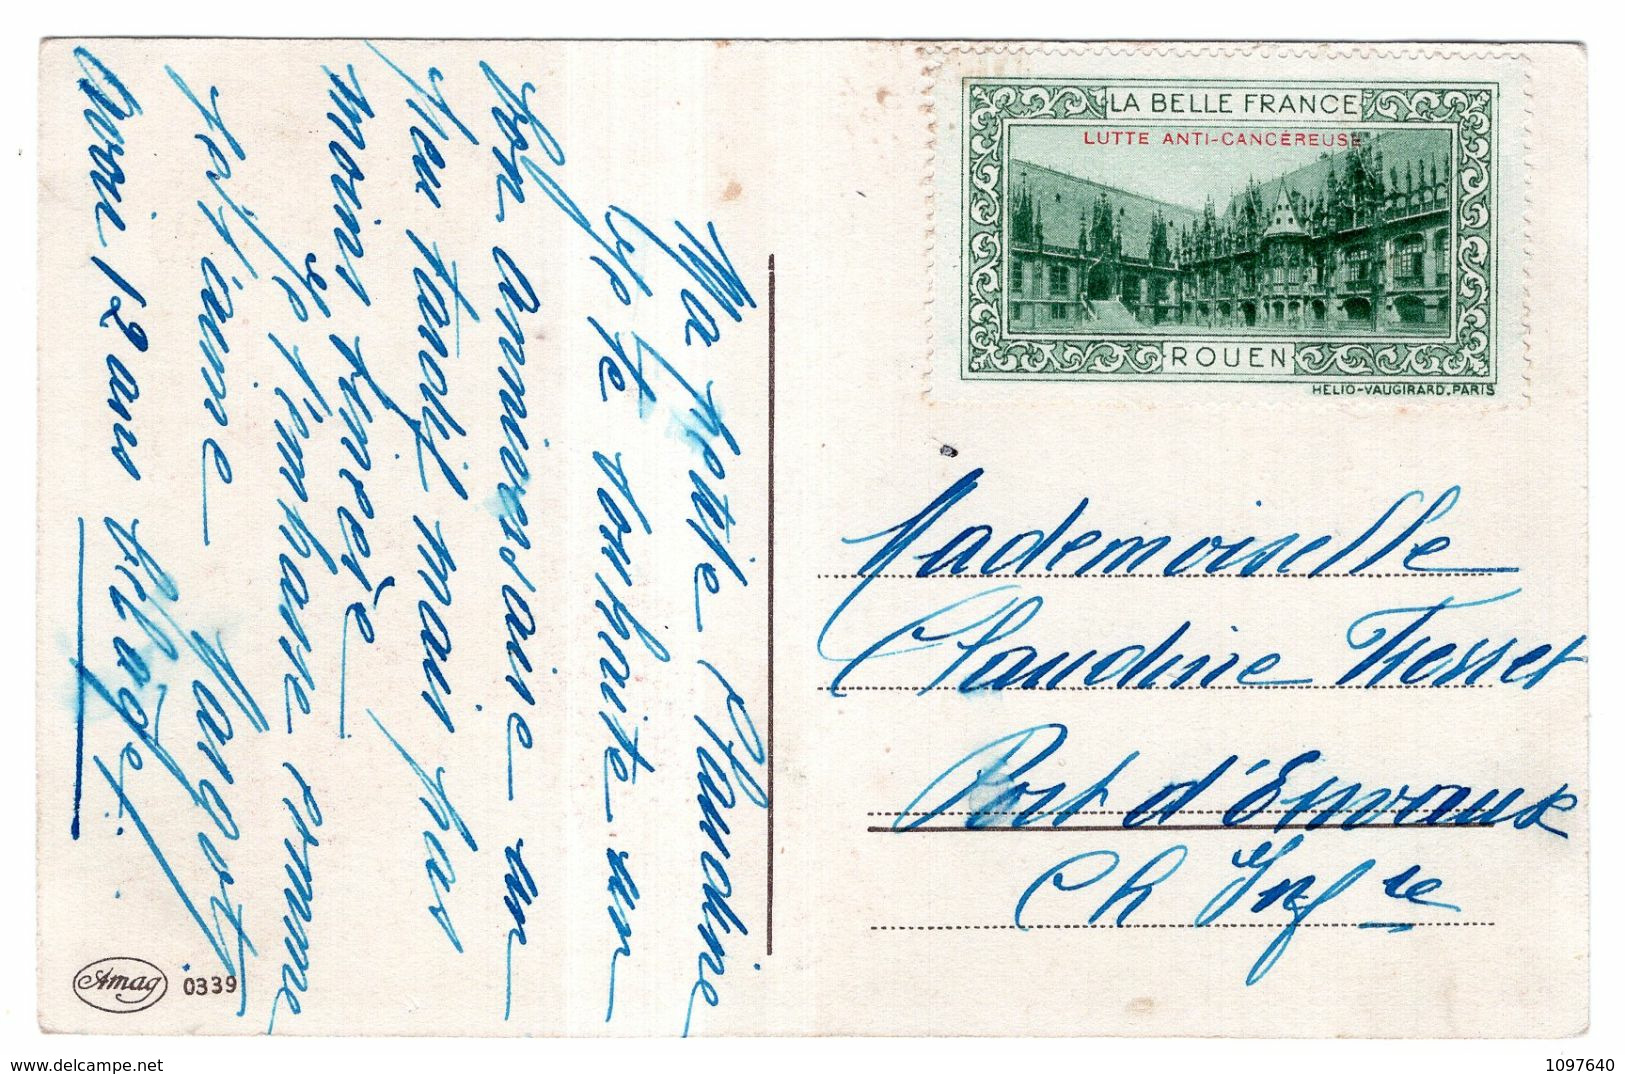 LA BELLE FRANCE
LUTTE ANTI-CANCÉREUSE
ROUEN
HELIO-VAUGIRARD.PARIS
Mademoiselle
Claudine Tresset
Port d'Envaux
Ch Infre
Ma ptite Claudine
je te souhaite un
bon anniversaire un
peu tardif mais pas
moins sincère
je t'embrasse comme
je t'aime
Margot
12 ans
Amag 0339
delcampe.net
1097640